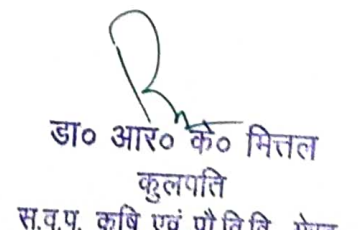 डा० आर० के० मित्तल
कुलपति
स.व.प. कृषि एवं प्रौ.वि.वि.